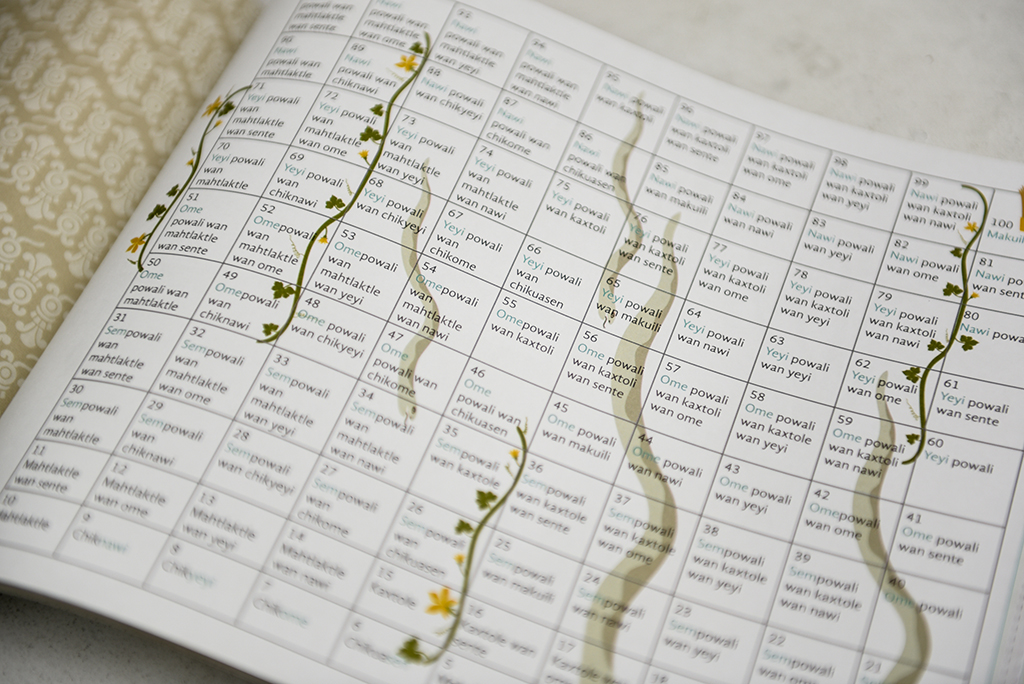 powali wan
mahtlaktle
wan sente
Nawi
powali wan
mahtlaktle
wan ome
93
Nawi
powali wan
mahtlaktle
wan yeyi
94
Nawi
powali wan
mahtlaktle
wan nawi
95
Nawi powali
wan kaxtoli
96
Nawi powali
wan kaxtoli
wan sente
97
Nawi powali
wan kaxtoli
wan ome
98
Nawi powali
wan kaxtoli
wan yeyi
99
Nawi powali
wan kaxtoli
wan nawi
100
90
Nawi
powali wan
mahtlaktle
89
Nawi
powali wan
chiknawi
88
Nawi powali
wan chikyeyi
87
Nawi
powali wan
chikome
86
Nawi
powali wan
chikuasen
85
Nawi powali
wan makuili
84
Nawi powali
wan nawi
83
Nawi powali
wan yeyi
82
Nawi powali
wan ome
81
wan sente
71
Yeyi powali
wan
mahtlaktle
wan sente
72
Yeyi powali
wan
mahtlaktle
wan ome
73
Yeyi powali
wan
mahtlaktle
wan yeyi
74
Yeyi powali
wan
mahtlaktle
wan nawi
75
Yeyi powali
wan kaxtoli
76
Yeyi powali
wan kaxtoli
wan sente
77
Yeyi powali
wan kaxtoli
wan ome
78
Yeyi powali
wan kaxtoli
wan yeyi
79
Yeyi powali
wan kaxtoli
wan nawi
80
Nawi
70
Yeyi powali
wan
mahtlaktle
69
Yeyi powali
wan
chiknawi
68
Yeyi powali
wan chikyeyi
67
Yeyi powali
wan
chikome
66
Yeyi powali
wan
chikuasen
65
Yeyi powali
wan makuili
64
Yeyi powali
wan nawi
63
Yeyi powali
wan yeyi
62
Yeyi powali
wan ome
61
Yeyi powali
wan sente
51
Ome
powali wan
mahtlaktle
wan sente
52
Ome powali
wan
mahtlaktle
wan ome
53
Ome powali
wan
mahtlaktle
wan yeyi
54
Omepowali
wan
mahtlaktle
wan nawi
55
Ome powali
wan kaxtoli
56
Ome powali
wan kaxtoli
wan sente
57
Ome powali
wan kaxtoli
wan ome
58
Ome powali
wan kaxtole
wan yeyi
59
Ome powali
wan kaxtoli
wan nawi
60
Yeyi powali
50
Ome
powali wan
mahtlaktle
49
Omepowali
wan
chiknawi
48
Ome powali
wan chikyeyi
47
Ome
powali wan
chikome
46
Ome
powali wan
chikuasen
45
Ome powali
wan makuili
44
Ome powali
wan nawi
43
Ome powali
wan yeyi
42
Omepowali
wan ome
41
Ome powali
wan sente
31
Sempowali
wan
mahtlaktle
wan sente
32
Sempowali
wan
mahtlaktle
wan ome
33
Sempowali
wan
mahtlaktle
wan yeyi
34
Sempowali
wan
mahtlaktle
wan nawi
35
Sempowali
wan kaxtole
36
Sempowali
wan kaxtole
wan sente
37
Sempowali
wan kaxtole
wan ome
38
Sempowali
wan kaxtole
wan yeyi
39
Sempowali
wan kaxtole
wan nawi
40
Ome powali
30
Sempowali
wan
mahtlaktle
29
Sempowali
wan
chiknawi
28
Sempowali
wan chikyeyi
27
Sempowali
wan
chikome
26
Sempowali
wan
chikuasen
25
Sempowali
wan makuili
24
Sempowali
wan nawi
23
Sempowali
wan yeyi
22
Sempowali
wan ome
21
11
Mahtlaktle
wan sente
12
Mahtlaktle
wan ome
13
Mahtlaktle
wan yeyi
14
Mahtlaktle
wan nawi
15
Kaxtole
16
Kaxtole wan
sente
17
Kaxtole
18
10
Mahtlaktle
9
Chiknawi
8
Chikyeyi
7
Chikome
6
Chikuasen
5